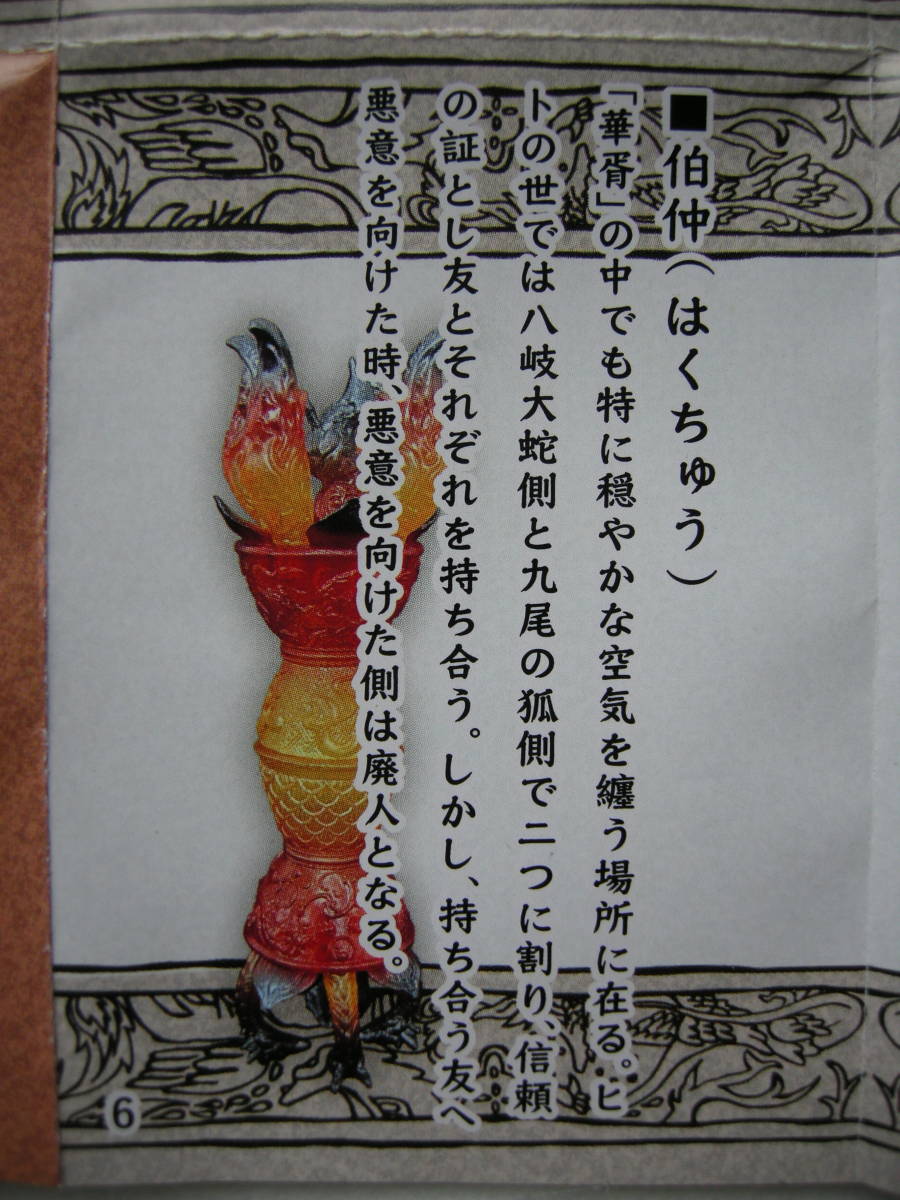 ■伯仲(はくちゅう)
「華胥」の中でも特に穏やかな空気を纏う場所に在る。ヒ
トの世では八岐大蛇側と九尾の狐側で二つに割り、信頼
の証とし友とそれぞれを持ち合う。しかし、持ち合う友へ
悪意を向けた時、悪意を向けた側は廃人となる。
6